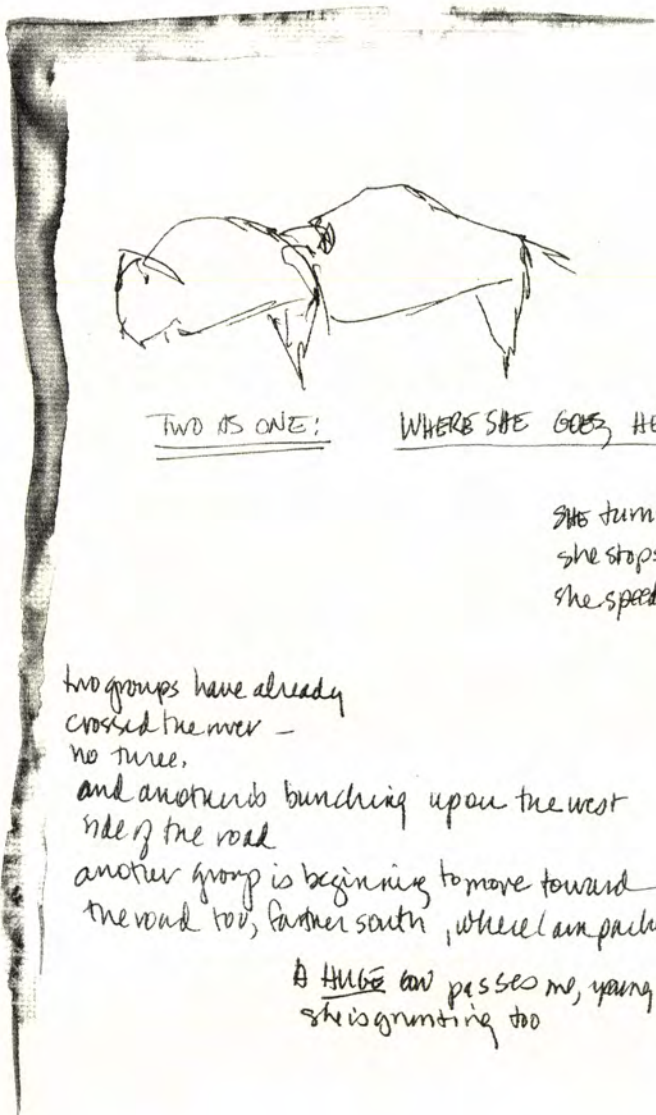 TWO AS ONE: WHERE SHE GOES, HE
SHE turn
she stops
she speed
two groups have already
crossed the river –
no three.
and another is bunching up on the west
side of the road
another group is beginning to move toward
the road too, farther south, where I am parke
A HUGE cow passes me, young
she is grunting too